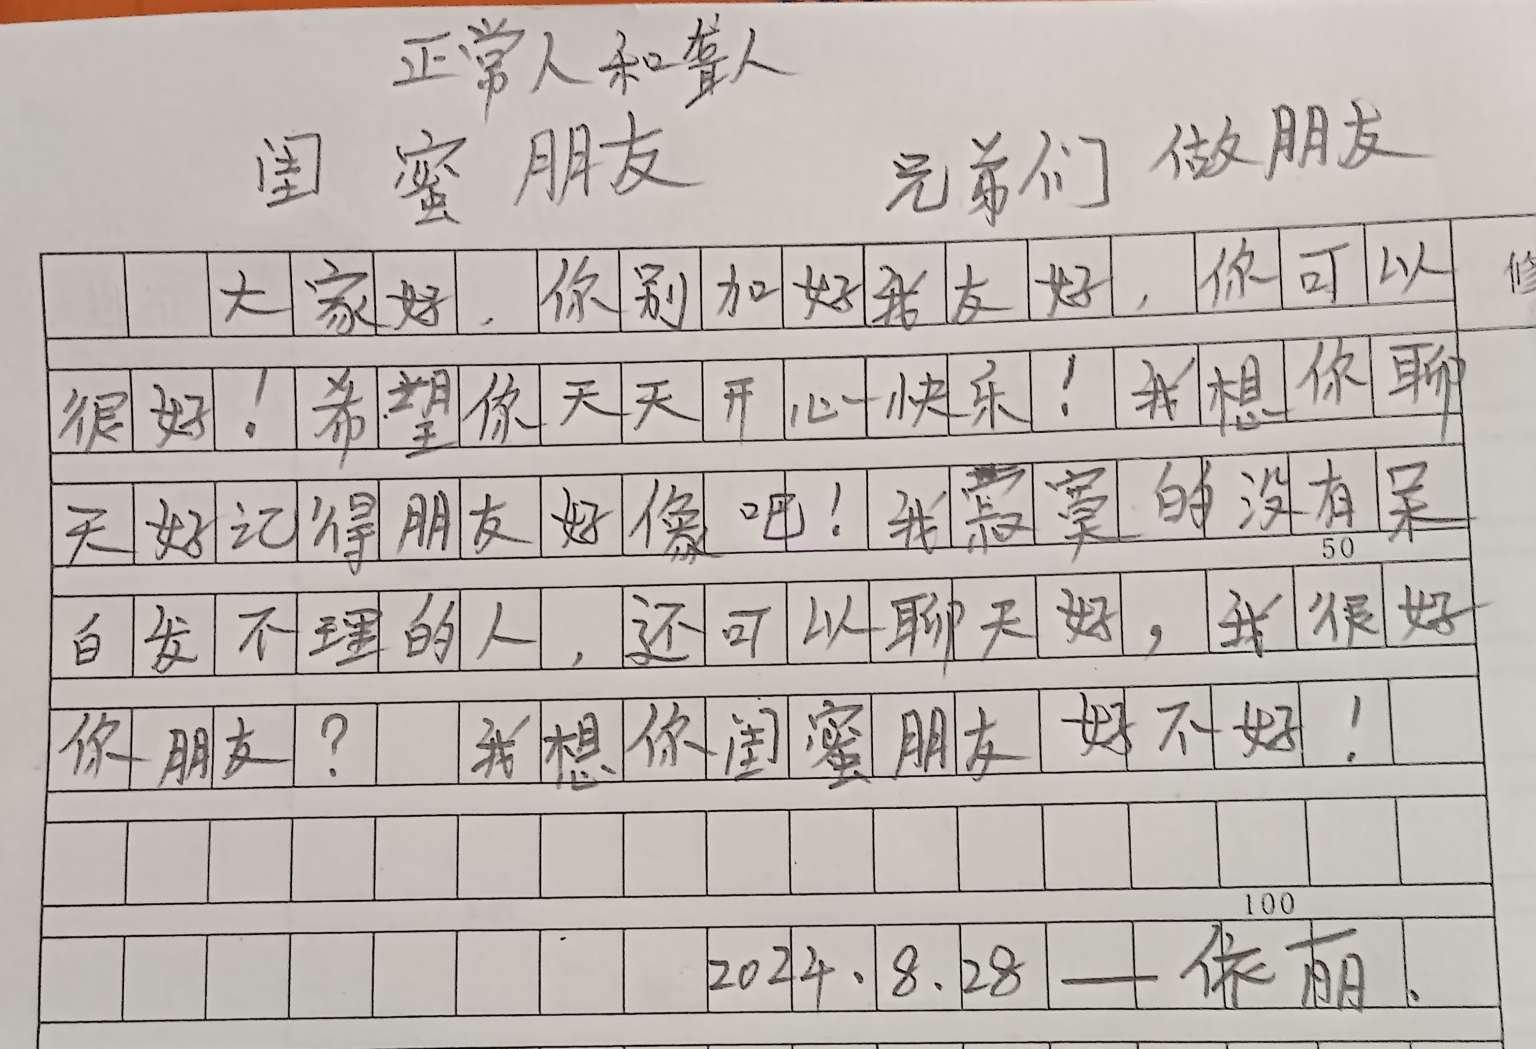 正常人和聋人
闺蜜朋友 兄弟们 做朋友
大家好，你别加好我友好，你可以
修
很好！希望你天天开心快乐！我想你聊
天好记得朋友好像吧！我寂寞的没有呆
50
自发不理的人，还可以聊天好，我很好
你朋友？ 我想你闺蜜朋友好不好！
100
2024.8.28——依丽.